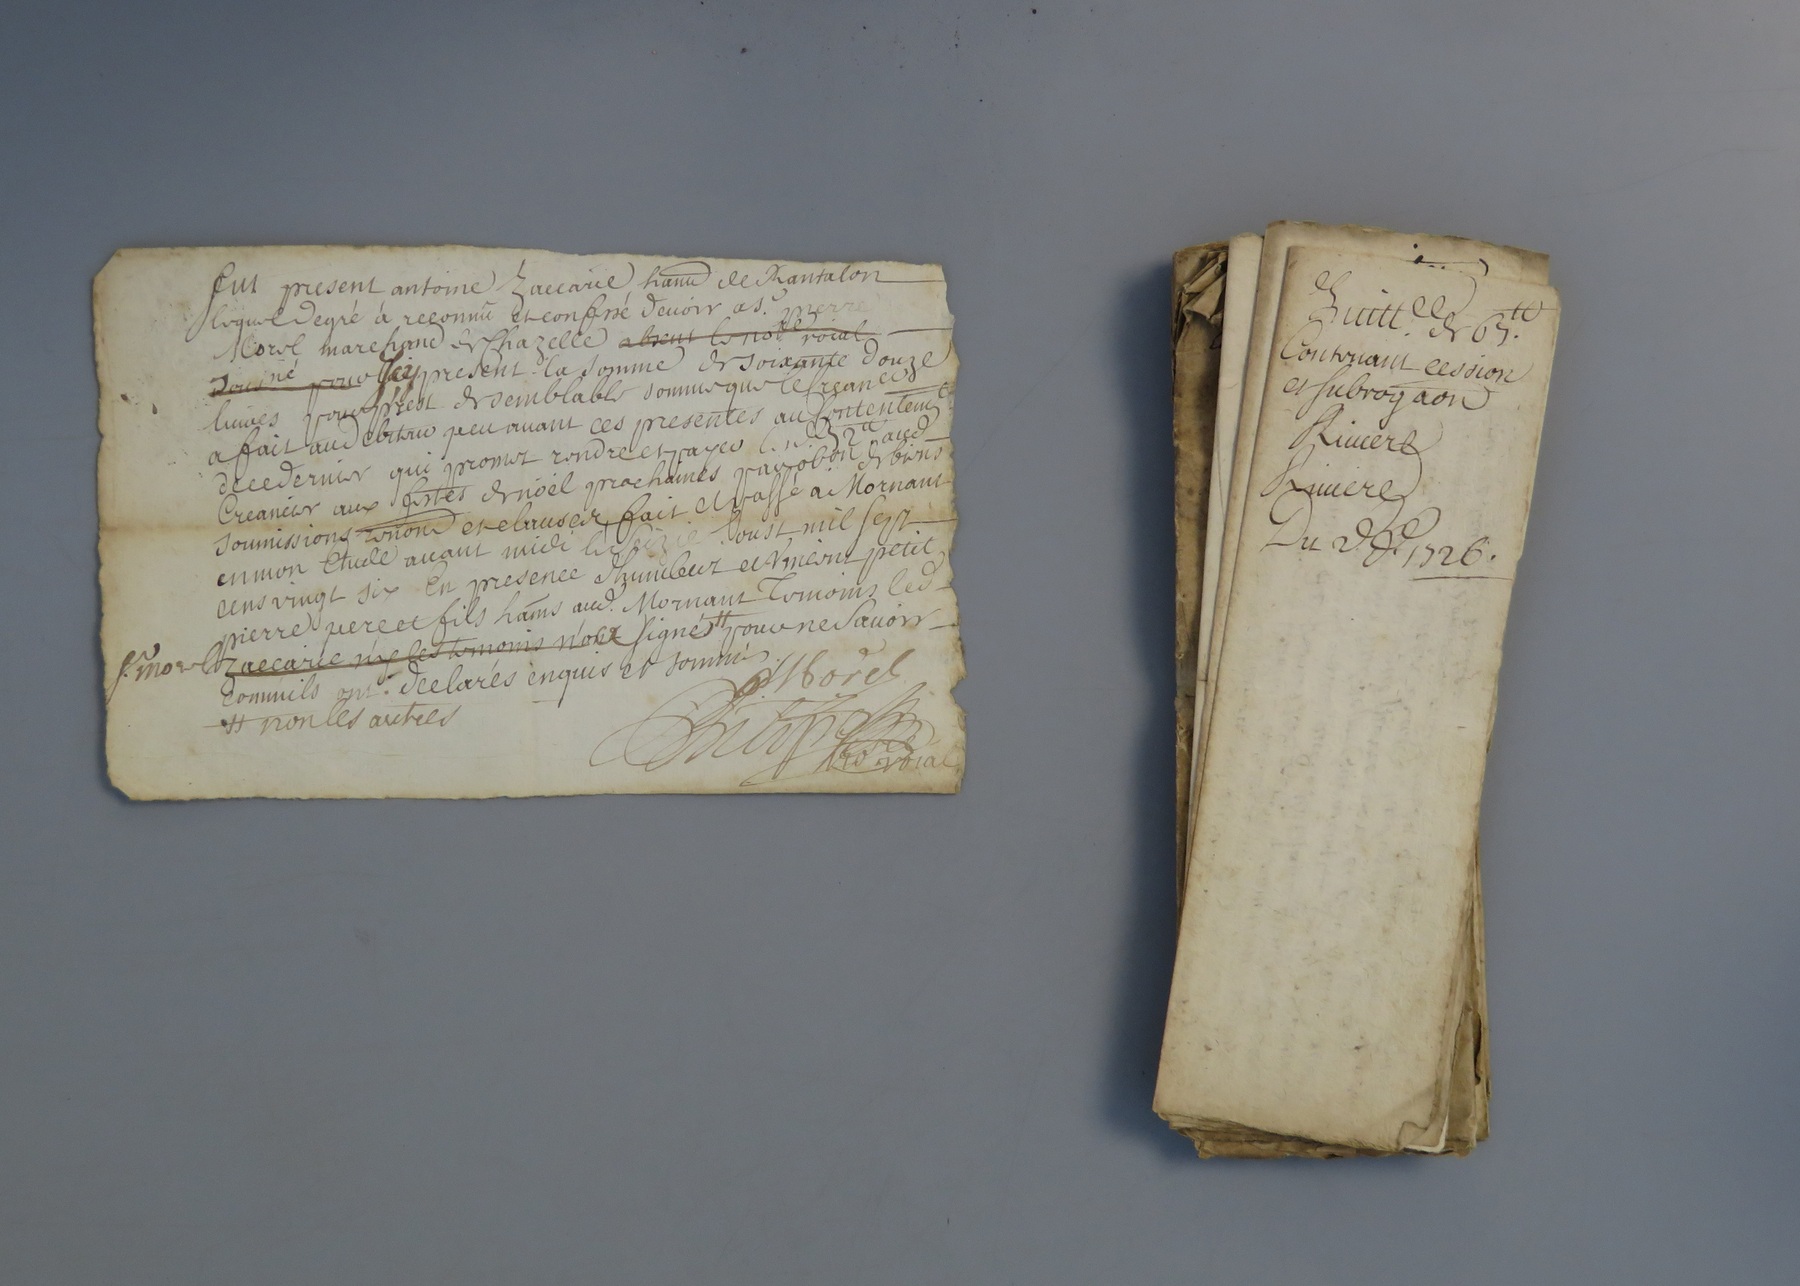 fut present antoine Zaccarie hant de Chantalon
lequel de gré à reconnu et confessé devoir a sr. pierre
Morel marchand de Chazelle absent le nore roial
sousné pour luy present la somme de soixante douze
livres pour prest de semblable somme que le creancier
a fait aud. debiteur peu avant ces presentes au contentemt
de ce dernier qui promet rendre et payer aud.
Creancier aux festes de noël prochaines par obon de biens
soumissions renons et clauses, fait et passé a Mornant
en mon Etude avant midi le seizie aoust mil sept
cens vingt six En presence d'humbert et petit
pierre pere et fils hans aud. Mornant temoins led.
sr. morel
Zaccarie ny les temoins n'ont signé # pour ne savoir
comm'ils ont declarés enquis et sommé
# non les autres
p. Morel
nore roial
Quittce de 67tt.
Contenant cession
et subrogaon
Riviere
Riviere
Du 2. 8bre 1726.